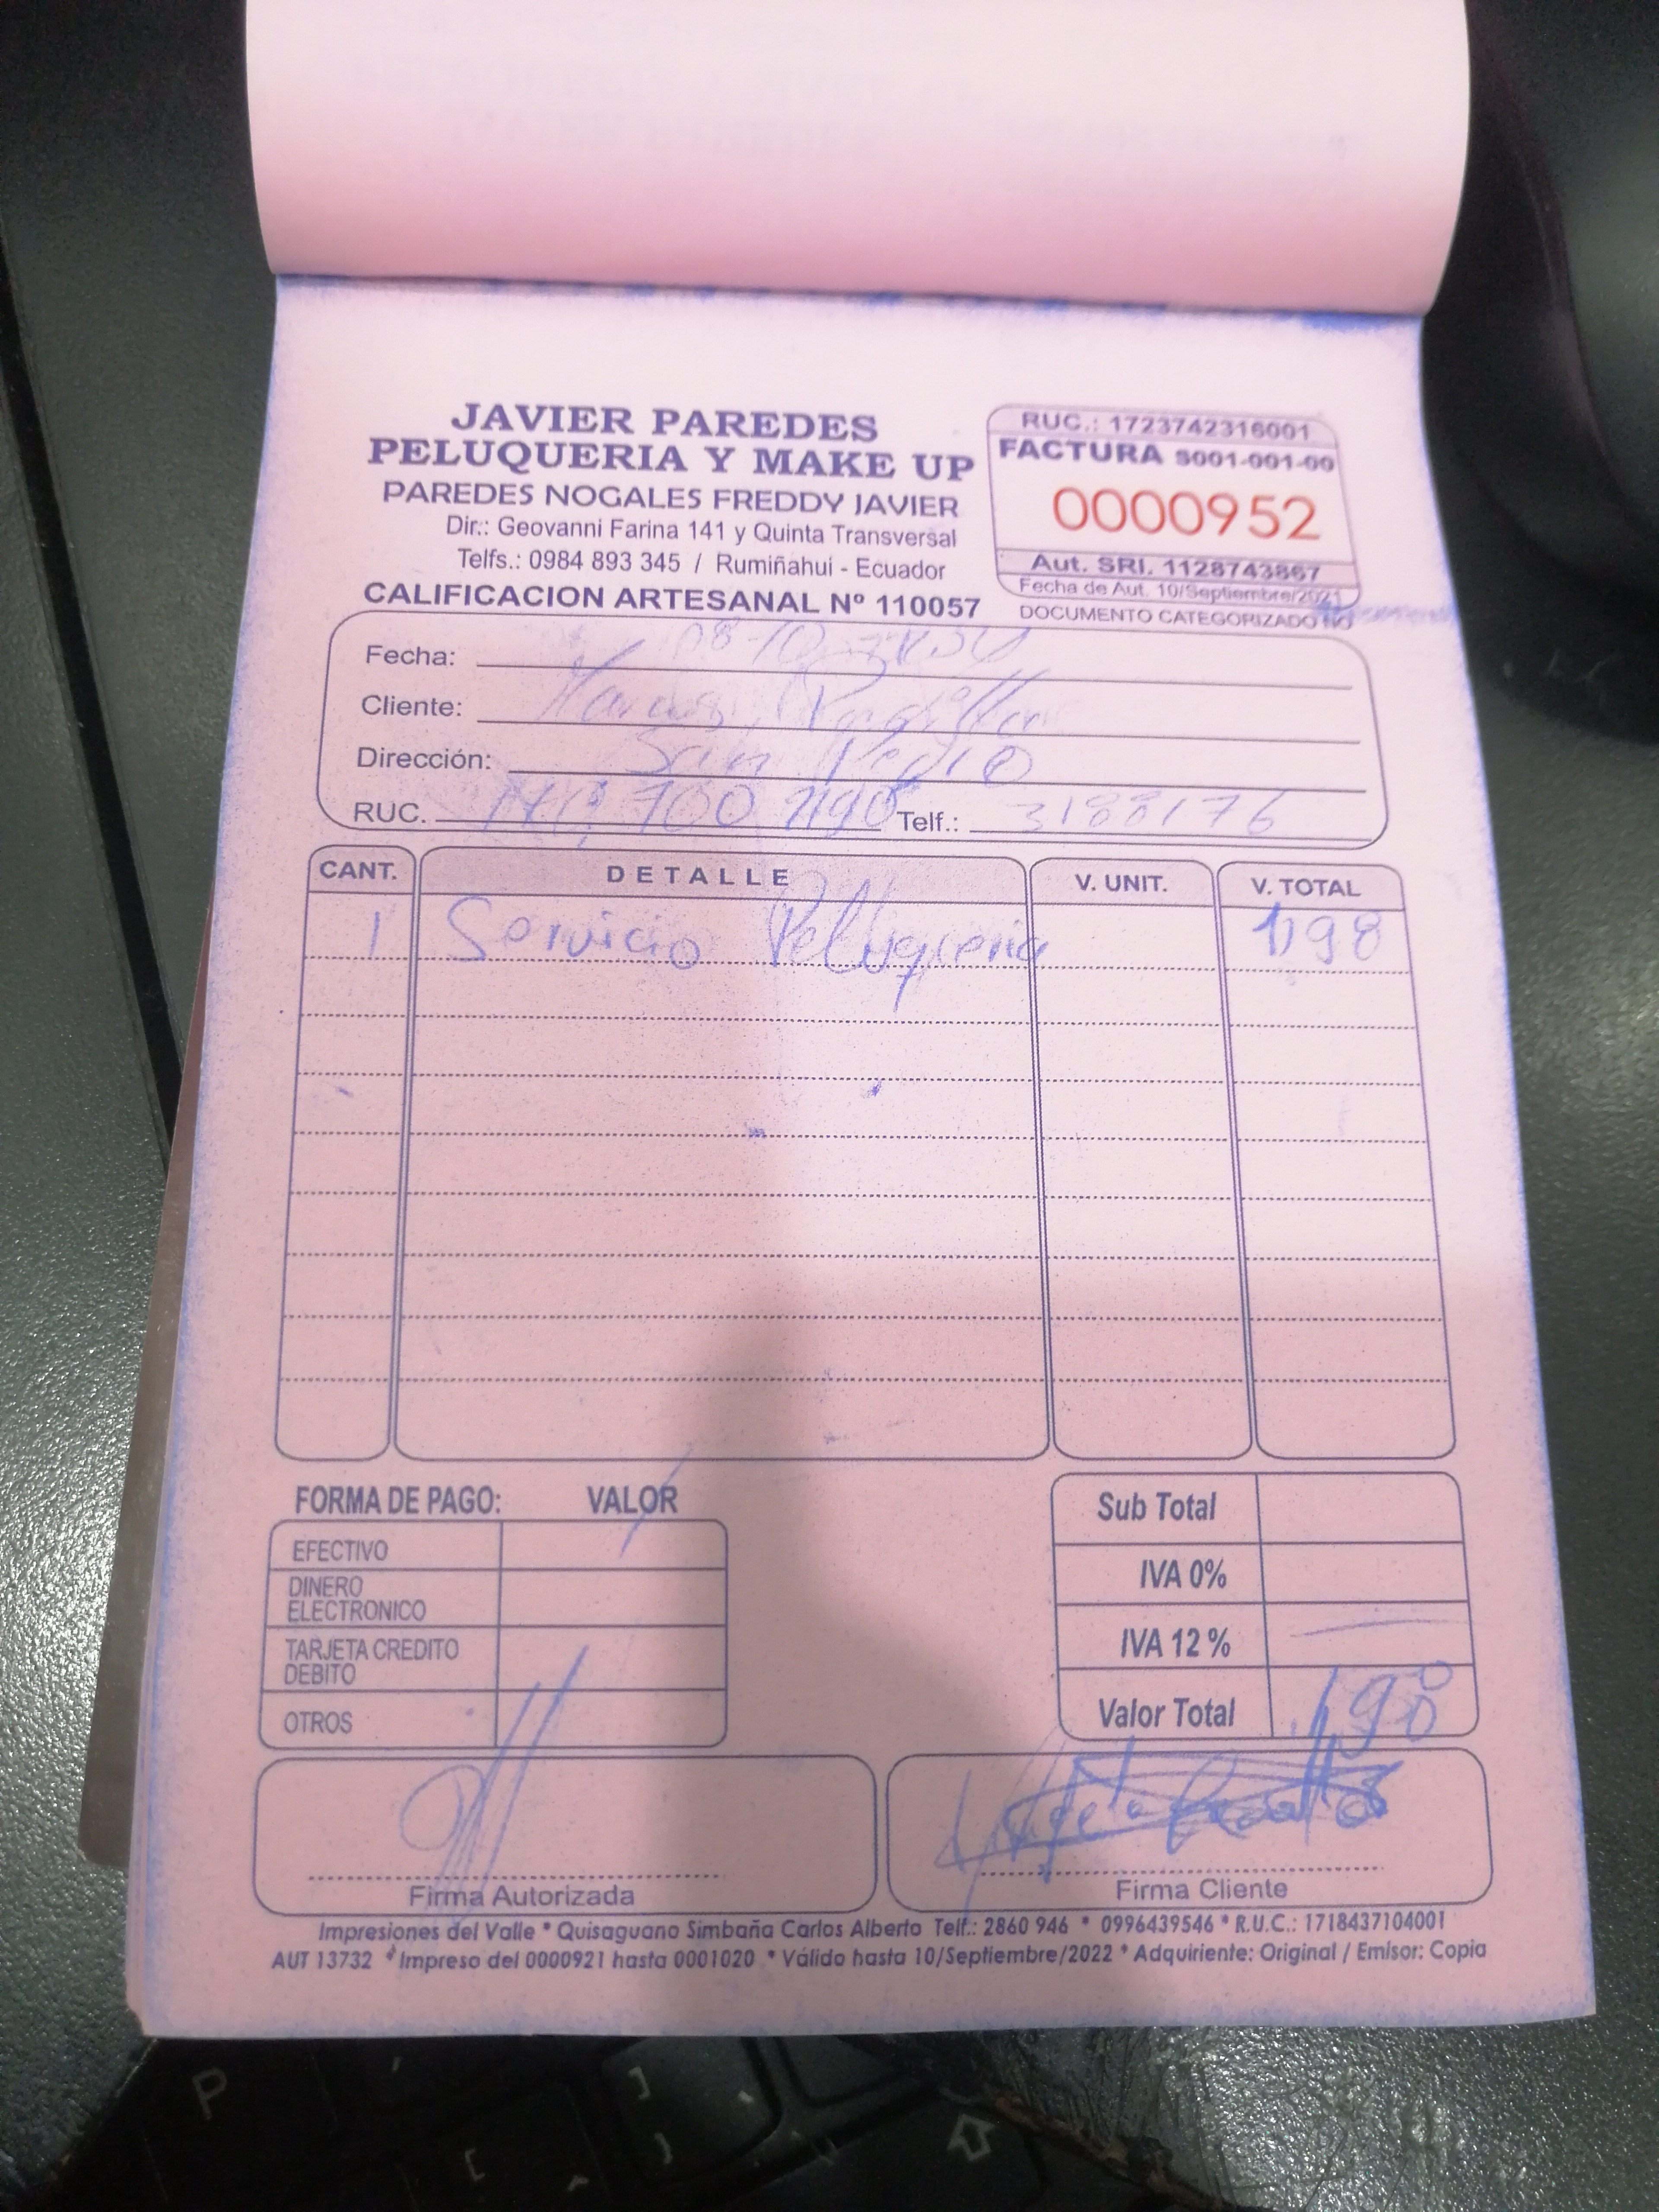 JAVIER PAREDES
PELUQUERIA Y MAKE UP
PAREDES NOGALES FREDDY JAVIER
Dir.: Geovanni Farina 141 y Quinta Transversal
Telfs.: 0984 893 345 / Rumiñahui - Ecuador
CALIFICACION ARTESANAL Nº 110057
RUC.: 1723742316001
FACTURA S001-001-00
0000952
Aut. SRI. 1128743867
Fecha de Aut. 10/Septiembre/2021
DOCUMENTO CATEGORIZADO NO
Fecha: 08-10-
Cliente:
Dirección: San Pedro
RUC. Telf.: 3188176
CANT. DETALLE V. UNIT. V. TOTAL
1 Servicio Peluqueria 1,98
FORMA DE PAGO: VALOR
EFECTIVO
DINERO ELECTRONICO
TARJETA CREDITO DEBITO
OTROS
Sub Total
IVA 0%
IVA 12 %
Valor Total 1,98
Firma Autorizada
Firma Cliente
Impresiones del Valle * Quisaguano Simbaña Carlos Alberto Telf.: 2860 946 * 0996439546 * R.U.C.: 1718437104001
AUT 13732 * Impreso del 0000921 hasta 0001020 * Válido hasta 10/Septiembre/2022 * Adquiriente: Original / Emisor: Copia
P